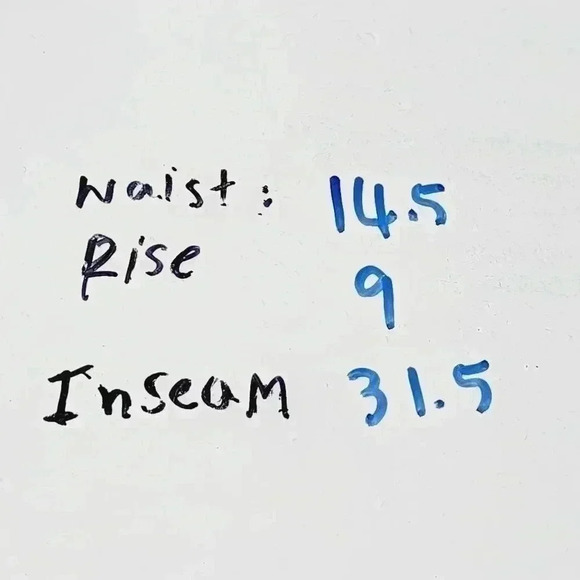 Waist: 14.5
Rise 9
Inseam 31.5